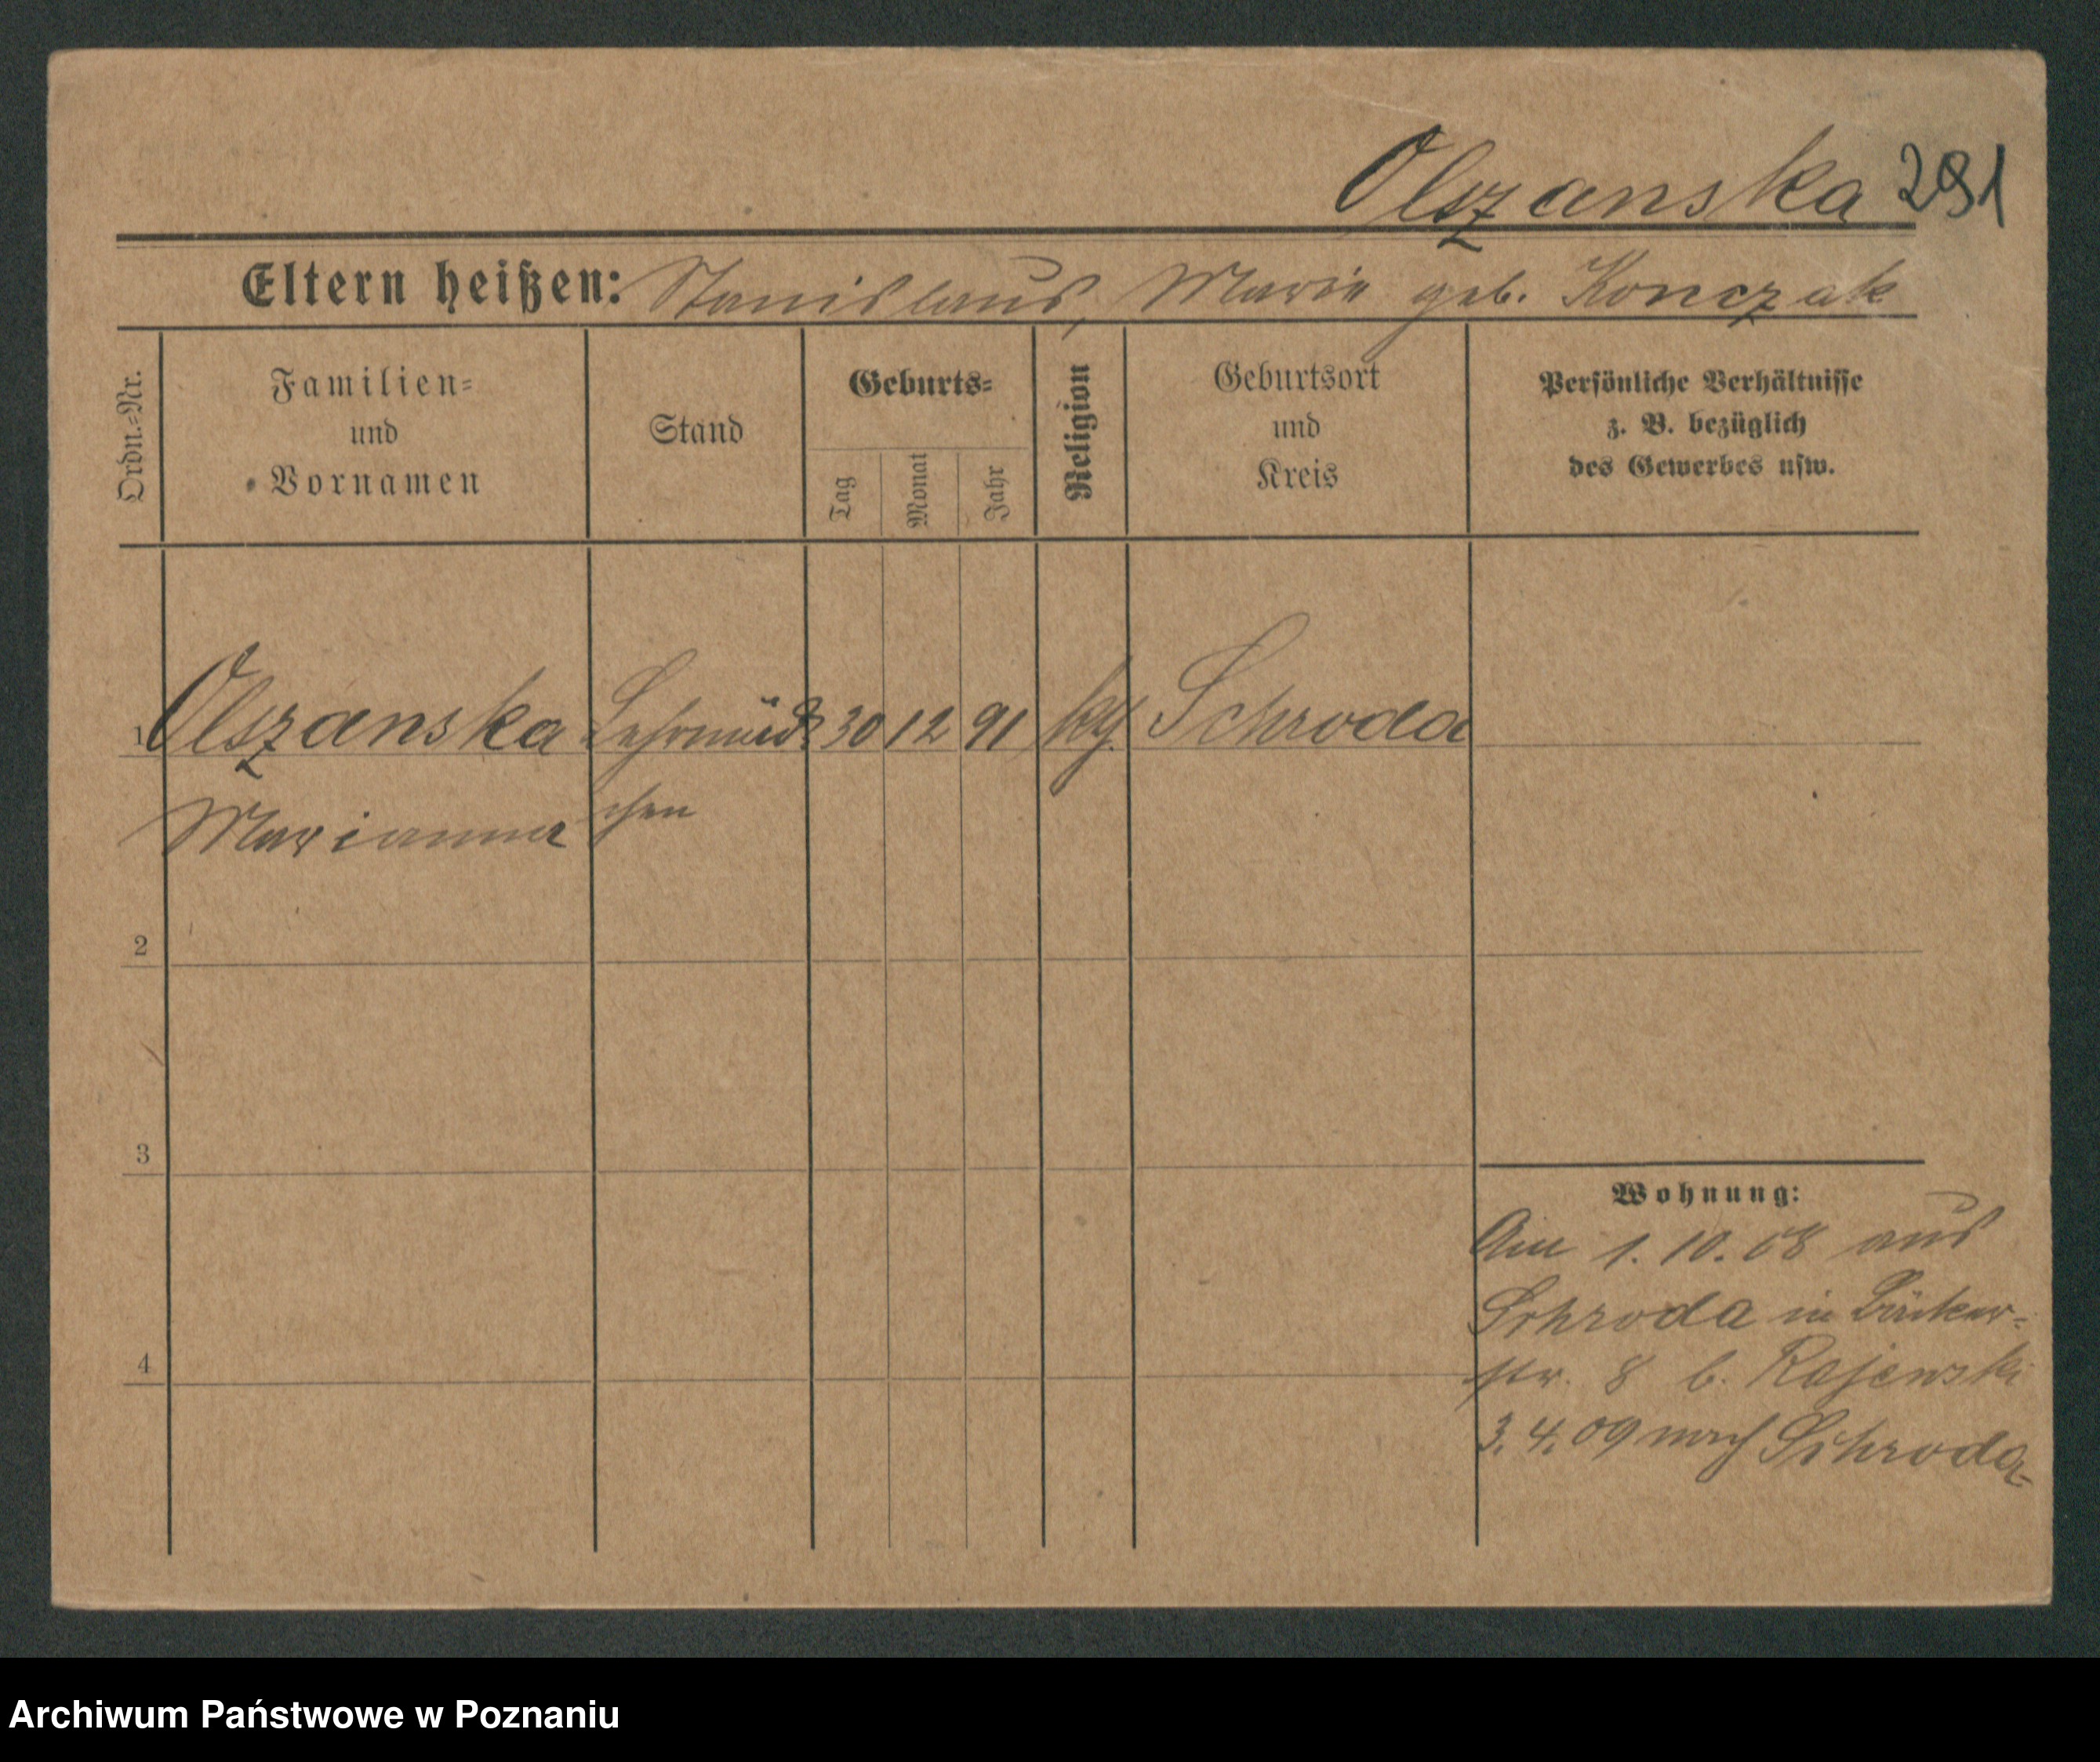 Olszanska 291
Eltern heißen: Stanislaus, Marie geb. Konczak
Ordn.=Nr.
Familien=
und
Vornamen
Stand
Geburts=
Tag
Monat
Jahr
Religion
Geburtsort
und
Kreis
Persönliche Verhältnisse
z. B. bezüglich
des Gewerbes usw.
1 Olszanska Lehrmäd= 30 12 91 kg. Schroda
Marianna chen
2
3
4
Wohnung:
Am 1.10.08 aus
Schroda in Bäcker=
str. 8 b. Rajewski
3.4.09 nach Schroda
Archiwum Państwowe w Poznaniu